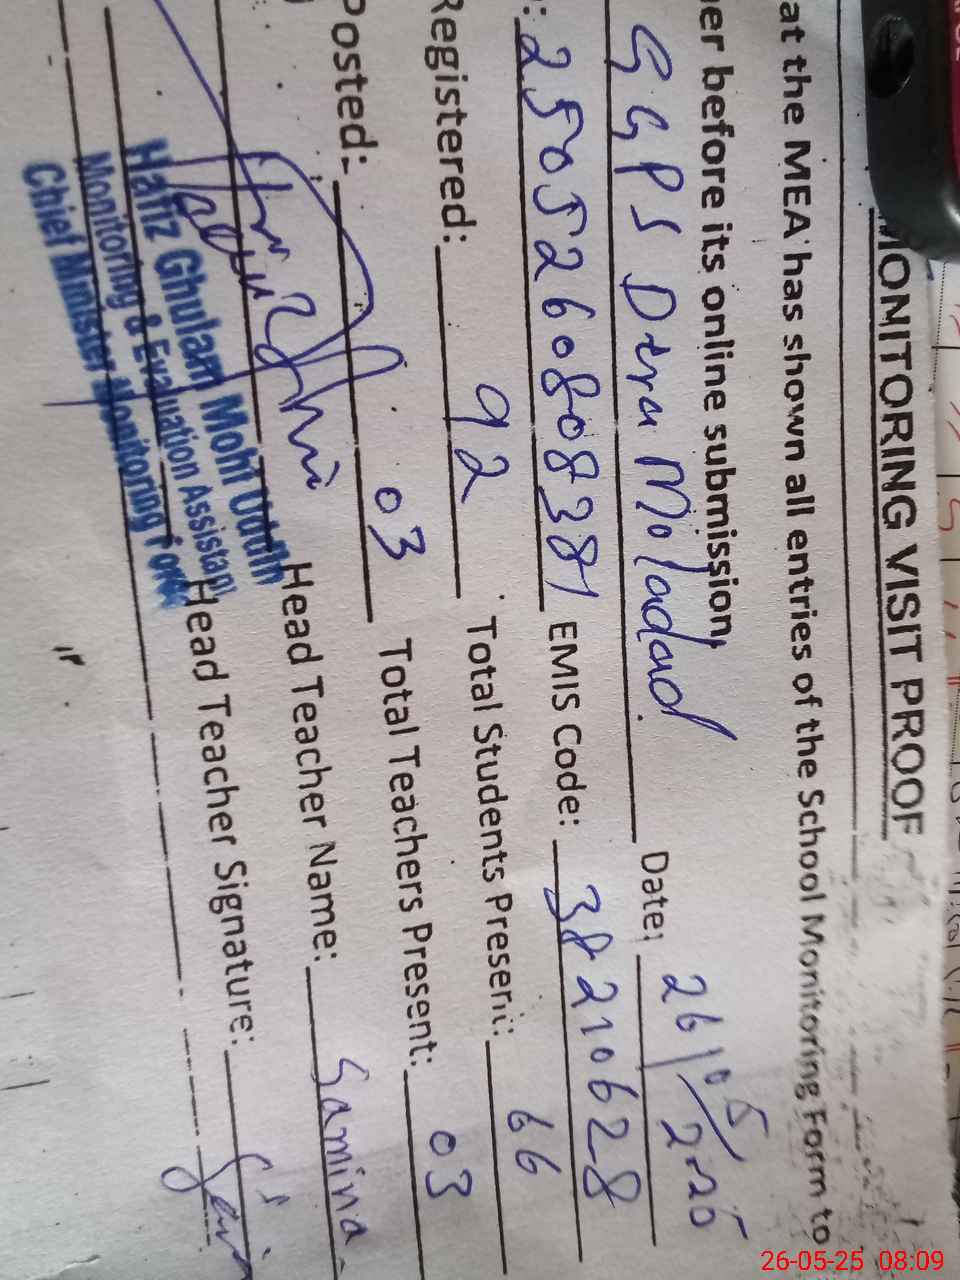 MONITORING VISIT PROOF
at the MEA has shown all entries of the School Monitoring Form to
er before its online submission.
GGPS Dera Moladad Date: 26/05/2025
: 2505260808381 EMIS Code: 38210628
Registered: 92 Total Students Present: 66
Posted: 03 Total Teachers Present: 03
Head Teacher Name: Samina
Head Teacher Signature:
Hafiz Ghulam Mohi Uddin
Monitoring & Evaluation Assistant
Chief Minister Monitoring Force
26-05-25 08:09